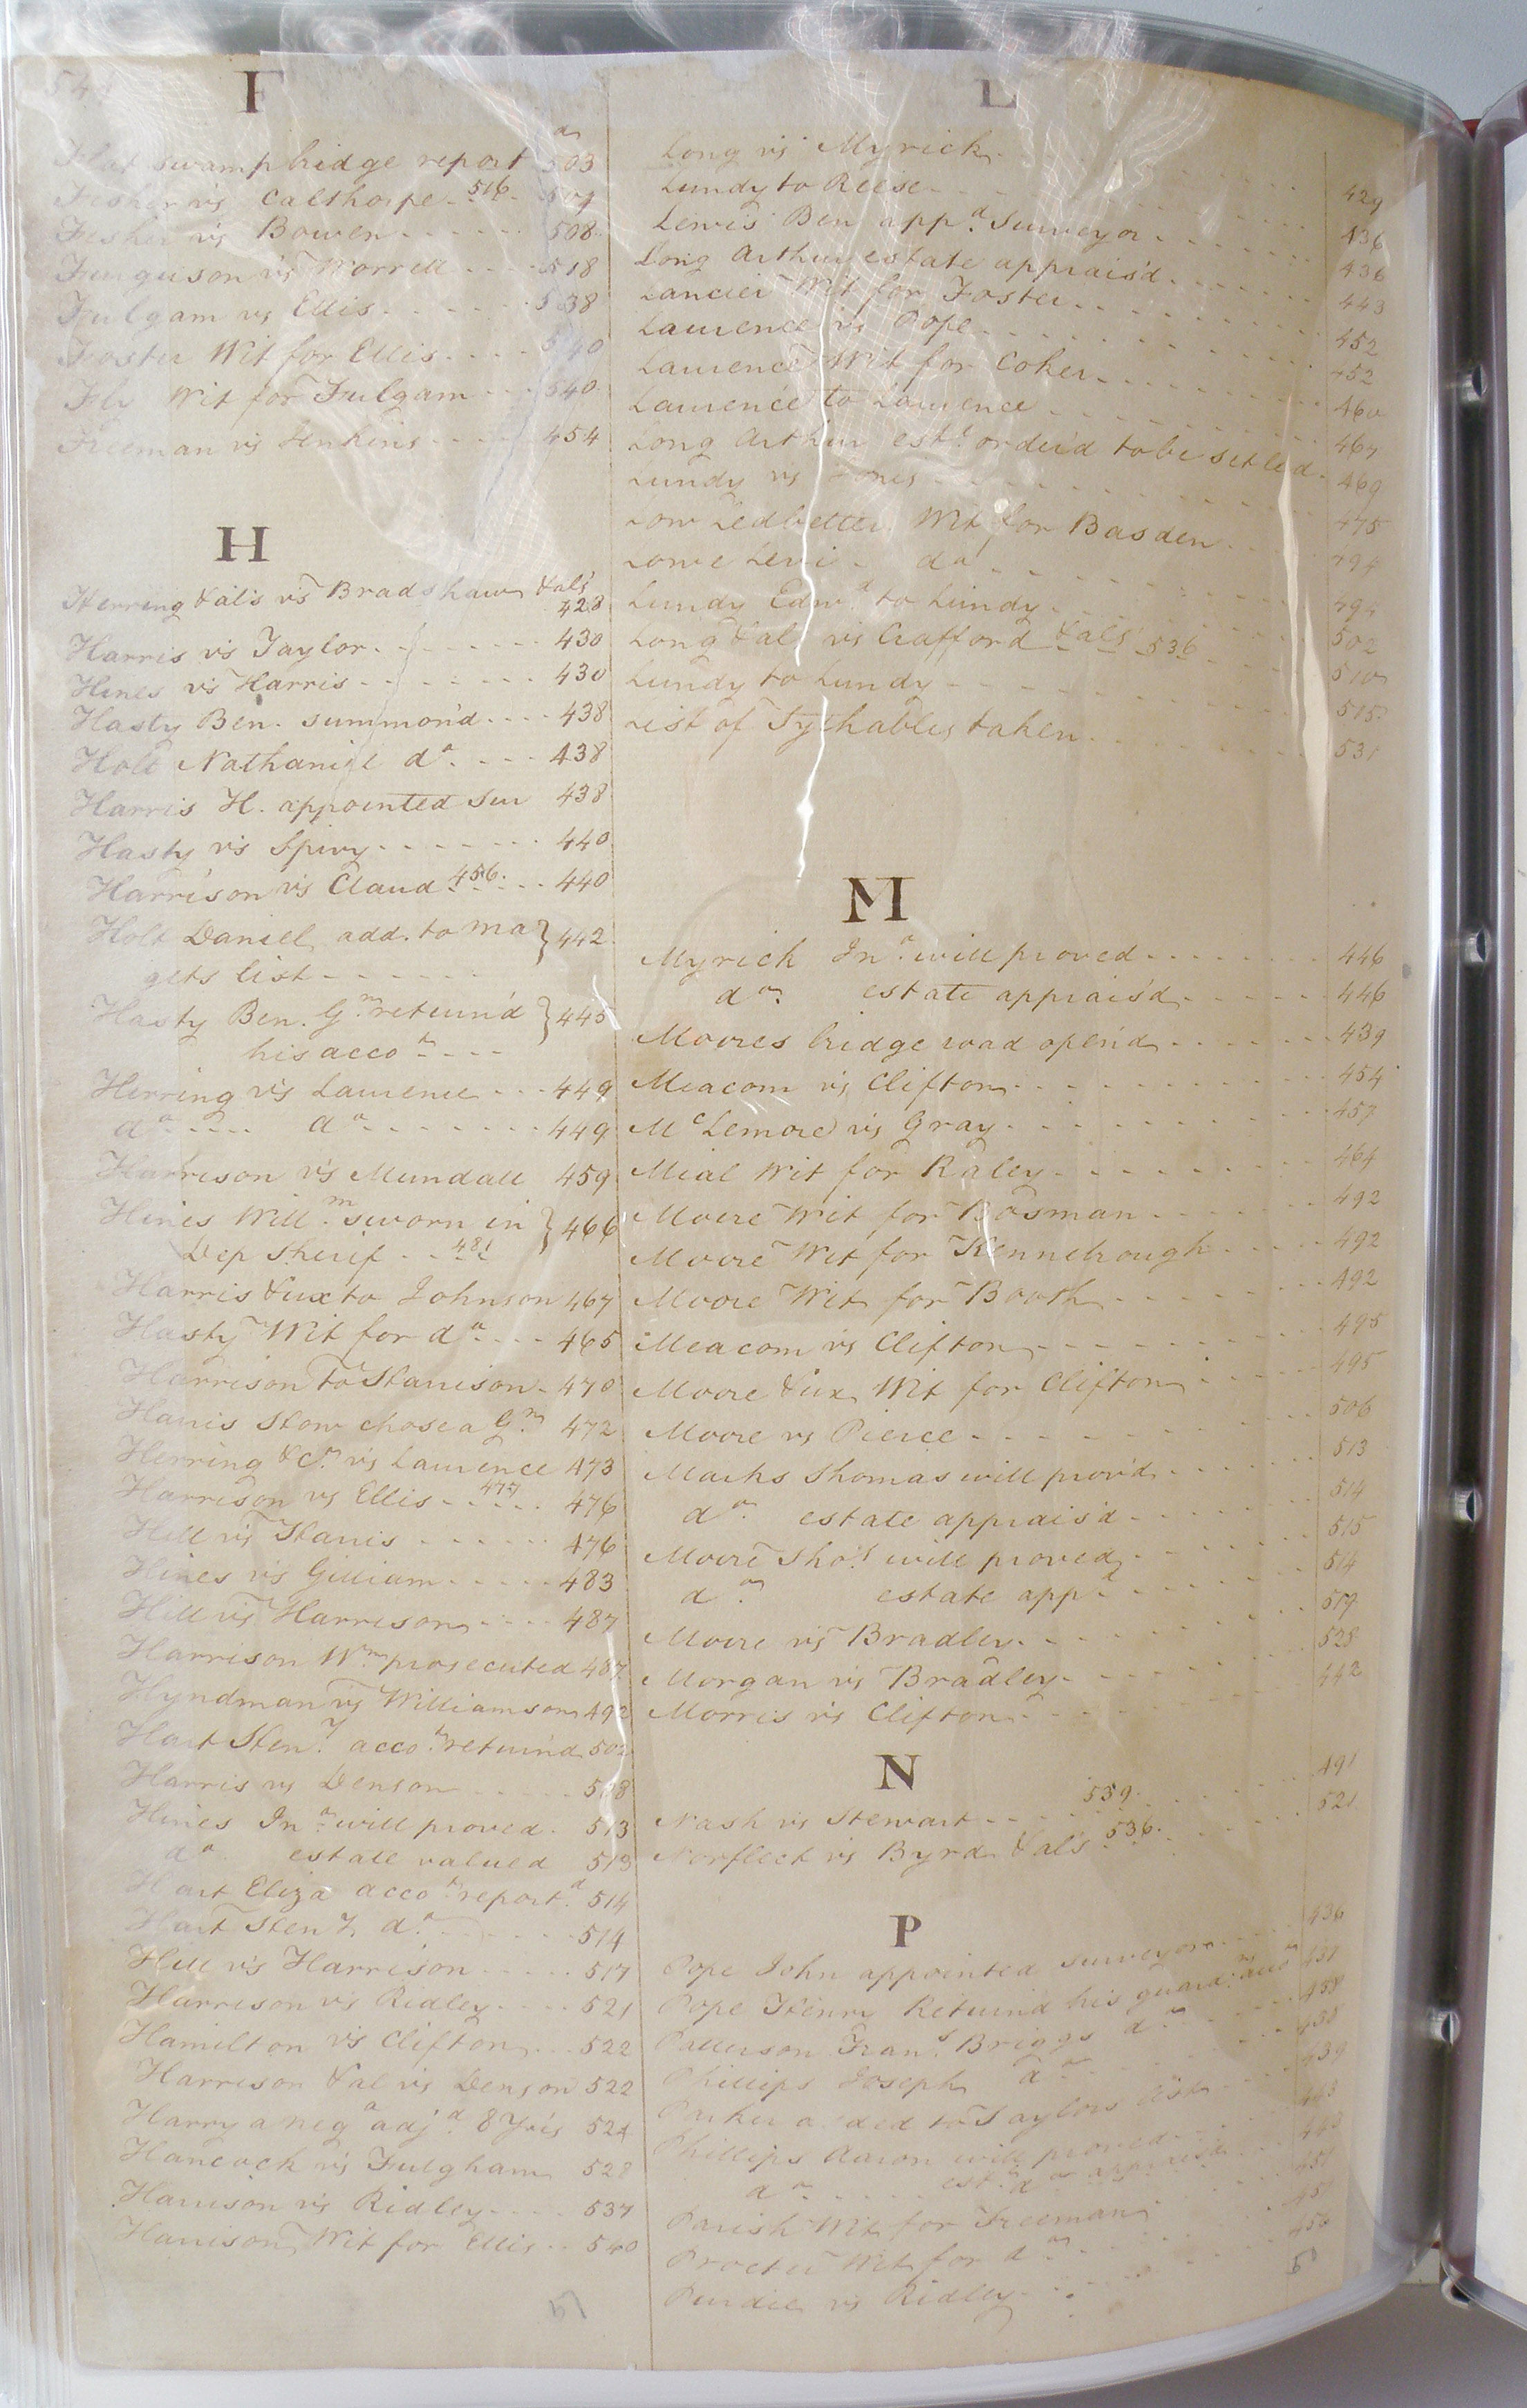 F
Flat swamp bridge report 503
Fisher vs Calthorpe 516 507
Fisher vs Bowen 508
Furguson vs Worrell 518
Fulgam vs Ellis 538
Foster Wit for Ellis 540
Fly Wit for Fulgam 540
Freeman vs Jenkins 454
H
Herring & als vs Bradshaw & als
428
Harris vs Taylor 430
Hines vs Harris 430
Hasty Ben. summon'd 438
Holt Nathaniel do. 438
Harris H. appointed Sur 438
Hasty vs Spivy 440
Harrison vs Claud 456. 440
Holt Daniel add. to Ma } 442
gets list
Hasty Ben. Gn. return'd } 445
his accot.
Herring vs Laurence 449
do. do. 449
Harrison vs Mundall 459
Hines Willm. sworn in } 466
Dep Sherif 481
Harris & ux to Johnson 467
Hasty Wit for do. 465
Harrison to Harrison 470
Harris Stow chose a Gn. 472
Herring & Co. vs Laurence 473
Harrison vs Ellis 477 476
Hill vs Harris 476
Hines vs Gilliam 483
Hill vs Harrison 487
Harrison Wm. prosecuted 487
Hyndman vs Williamson 492
Hart Heny. accot. return'd 502
Harris vs Denson 508
Hines Jno. will proved. 513
do. estate valued 513
Hart Eliza accot. reportd. 514
Hart Heny. do. 514
Hill vs Harrison 517
Harrison vs Ridley 521
Hamilton vs Clifton 522
Harrison & al vs Denson 522
Harry a nego adjd. 8 Yrs 524
Hancock vs Fulgham 528
Harrison vs Ridley 537
Harrison Wit for Ellis 540
L
Long vs Myrick 424
Lundy to Reese 436
Lewis Ben appd. Surveyor 436
Long Arthur estate apprais'd 443
Lancier Wit for Foster 452
Laurence vs Pope 452
Laurence Wit for Coker 460
Laurence to Laurence 467
Long Arthur estt. order'd to be setled 469
Lundy vs Jones 475
Low Ledbetter Wit for Basden 494
Lowe Levi do 494
Lundy Edwd. to Lundy 502
Long & al vs Crafford & als 536 510
Lundy to Lundy 515
List of Tythables taken 531
M
Myrick Jno. will proved 446
do. estate apprais'd 446
Moores bridge road open'd 439
Meacom vs Clifton 454
McLemore vs Gray 457
Mial Wit for Raley 464
Moore Wit for Bosman 492
Moore Wit for Kennebrough 492
Moore Wit for Booth 492
Meacom vs Clifton 495
Moore & ux Wit for Clifton 495
Moore vs Pierce 506
Marks Thomas will prov'd 513
do. estate apprais'd 514
Moore Thos. will proved 515
do. estate appd 514
Moore vs Bradley 517
Morgan vs Bradley 528
Morris vs Clifton 442
N
Nash vs Stewart 539. 491
Norfleet vs Byrd & als 536. 521
P
Pope John appointed surveyor 436
Pope Henry Return'd his guardns. acct 438
Patterson Frans. Briggs do 438
Phillips Joseph do 438
Parker added to Taylors list 439
Phillips Aaron will proved 443
do. est. do apprais'd 443
Parish Wit for Freeman 451
Procter Wit for do. 451
Purdie vs Ridley 456